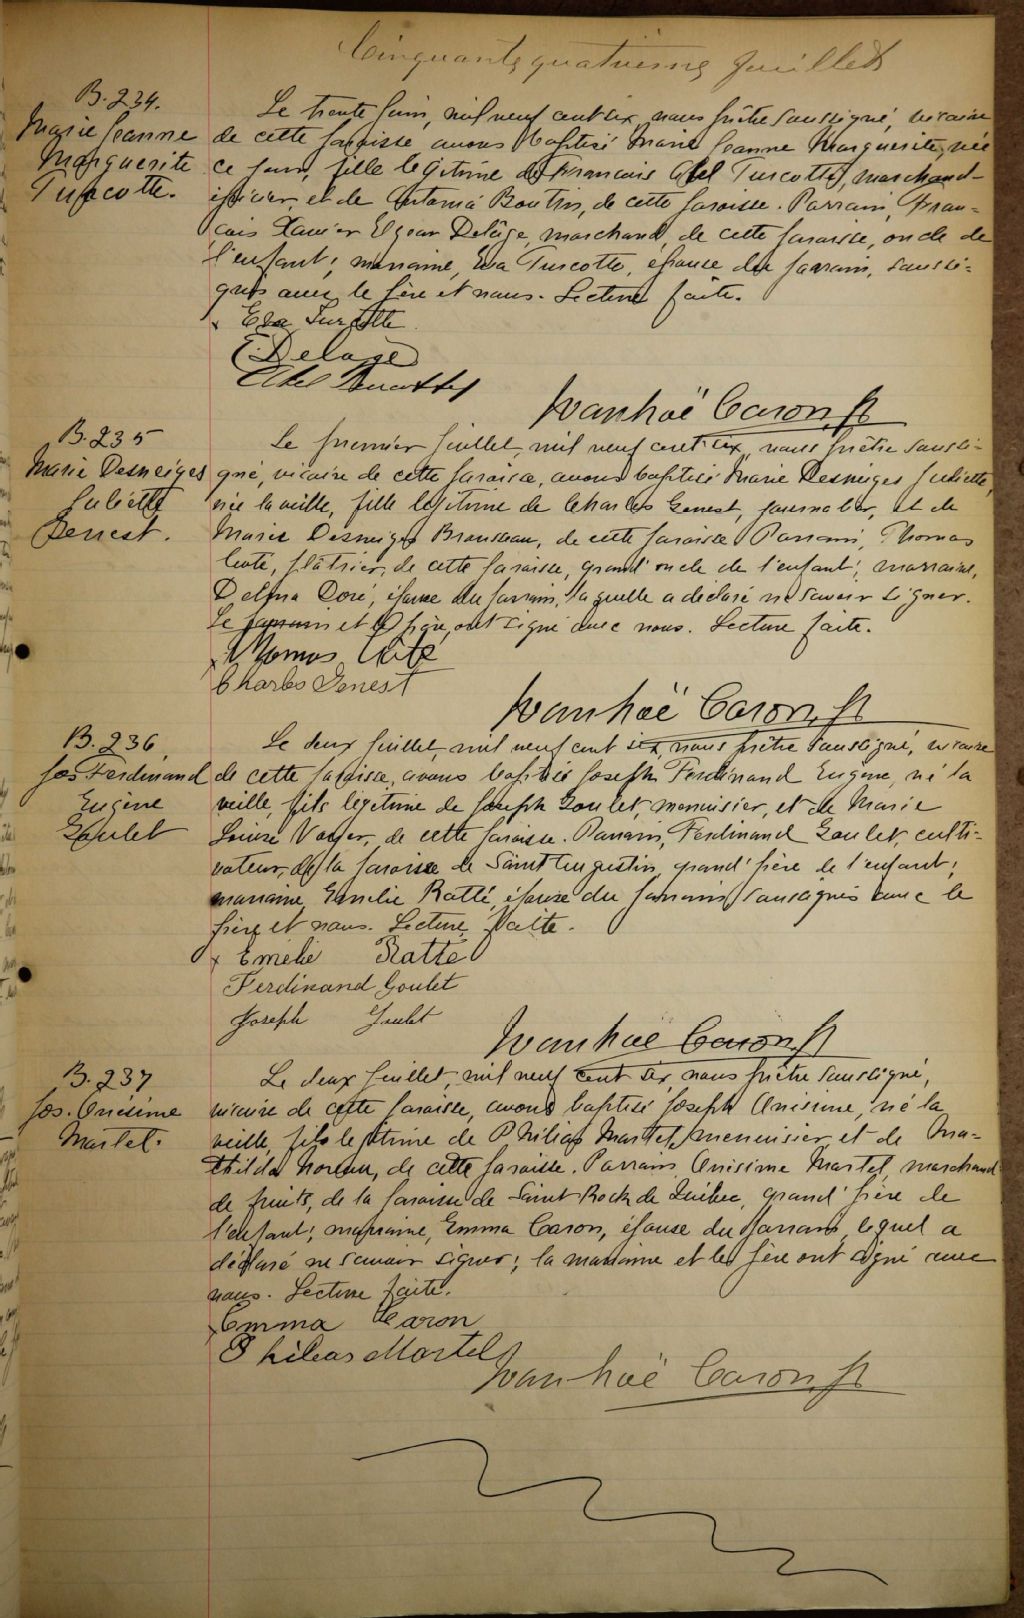 Cinquante quatrième feuillet
B. 234.
Marie Jeanne
Marguerite
Turcotte.
Le trente juin, mil neuf cent six, nous prêtre soussigné, vicaire
de cette paroisse avons baptisé Marie Jeanne Marguerite, née
ce jour, fille légitime de François Abel Turcotte, marchand-
épicier, et de Antonia Boutin, de cette paroisse. Parrain, Fran=
çois Xavier Elzéar Delâge, marchand, de cette paroisse, oncle de
l'enfant; marraine, Eva Turcotte, épouse du parrain, soussi=
gnés avec le père et nous. Lecture faite.
x Eva Turcotte
E. Delage
Abel Turcotte
Ivanhoë Caron, ptr
B. 235
Marie Desneiges
Juliette
Genest.
Le premier juillet, mil neuf cent six, nous prêtre soussi=
gné, vicaire de cette paroisse, avons baptisé Marie Desneiges Juliette,
née la veille, fille légitime de Charles Genest, journalier, et de
Marie Desneiges Brousseau, de cette paroisse. Parrain, Thomas
Coté, plâtrier, de cette paroisse, grand'oncle de l'enfant; marraine,
Delina Doré, épouse du parrain, laquelle a déclaré ne savoir signer.
Le parrain et le père, ont signé avec nous. Lecture faite.
x Thomas Coté
Charles Genest
Ivanhoë Caron, ptr
B. 236
Jos Ferdinand
Eugène
Goulet
Le deux juillet, mil neuf cent six, nous prêtre soussigné, vicaire
de cette paroisse, avons baptisé Joseph Ferdinand Eugène, né la
veille, fils légitime de Joseph Goulet, menuisier, et de Marie
Louise Voyer, de cette paroisse. Parrain, Ferdinand Goulet, culti=
vateur, de la paroisse de Saint Augustin, grand'père de l'enfant;
marraine, Emélie Ratté, épouse du parrain, soussignés avec le
père et nous. Lecture faite.
x Emélie Ratté
Ferdinand Goulet
Joseph Goulet
Ivanhoë Caron, ptr
B. 237
Jos. Onésime
Martel.
Le deux juillet, mil neuf cent six, nous prêtre soussigné,
vicaire de cette paroisse, avons baptisé Joseph Onisime, né la
veille, fils légitime de Philias Martel, menuisier, et de Ma=
thilda Moreau, de cette paroisse. Parrain Onisime Martel, marchand
de fruits, de la paroisse de Saint Roch de Québec, grand'père de
l'enfant; marraine, Emma Caron, épouse du parrain, lequel a
déclaré ne savoir signer; la marraine et le père ont signé avec
nous. Lecture faite.
x Emma Caron
Phileas Martel
Ivanhoë Caron, ptr